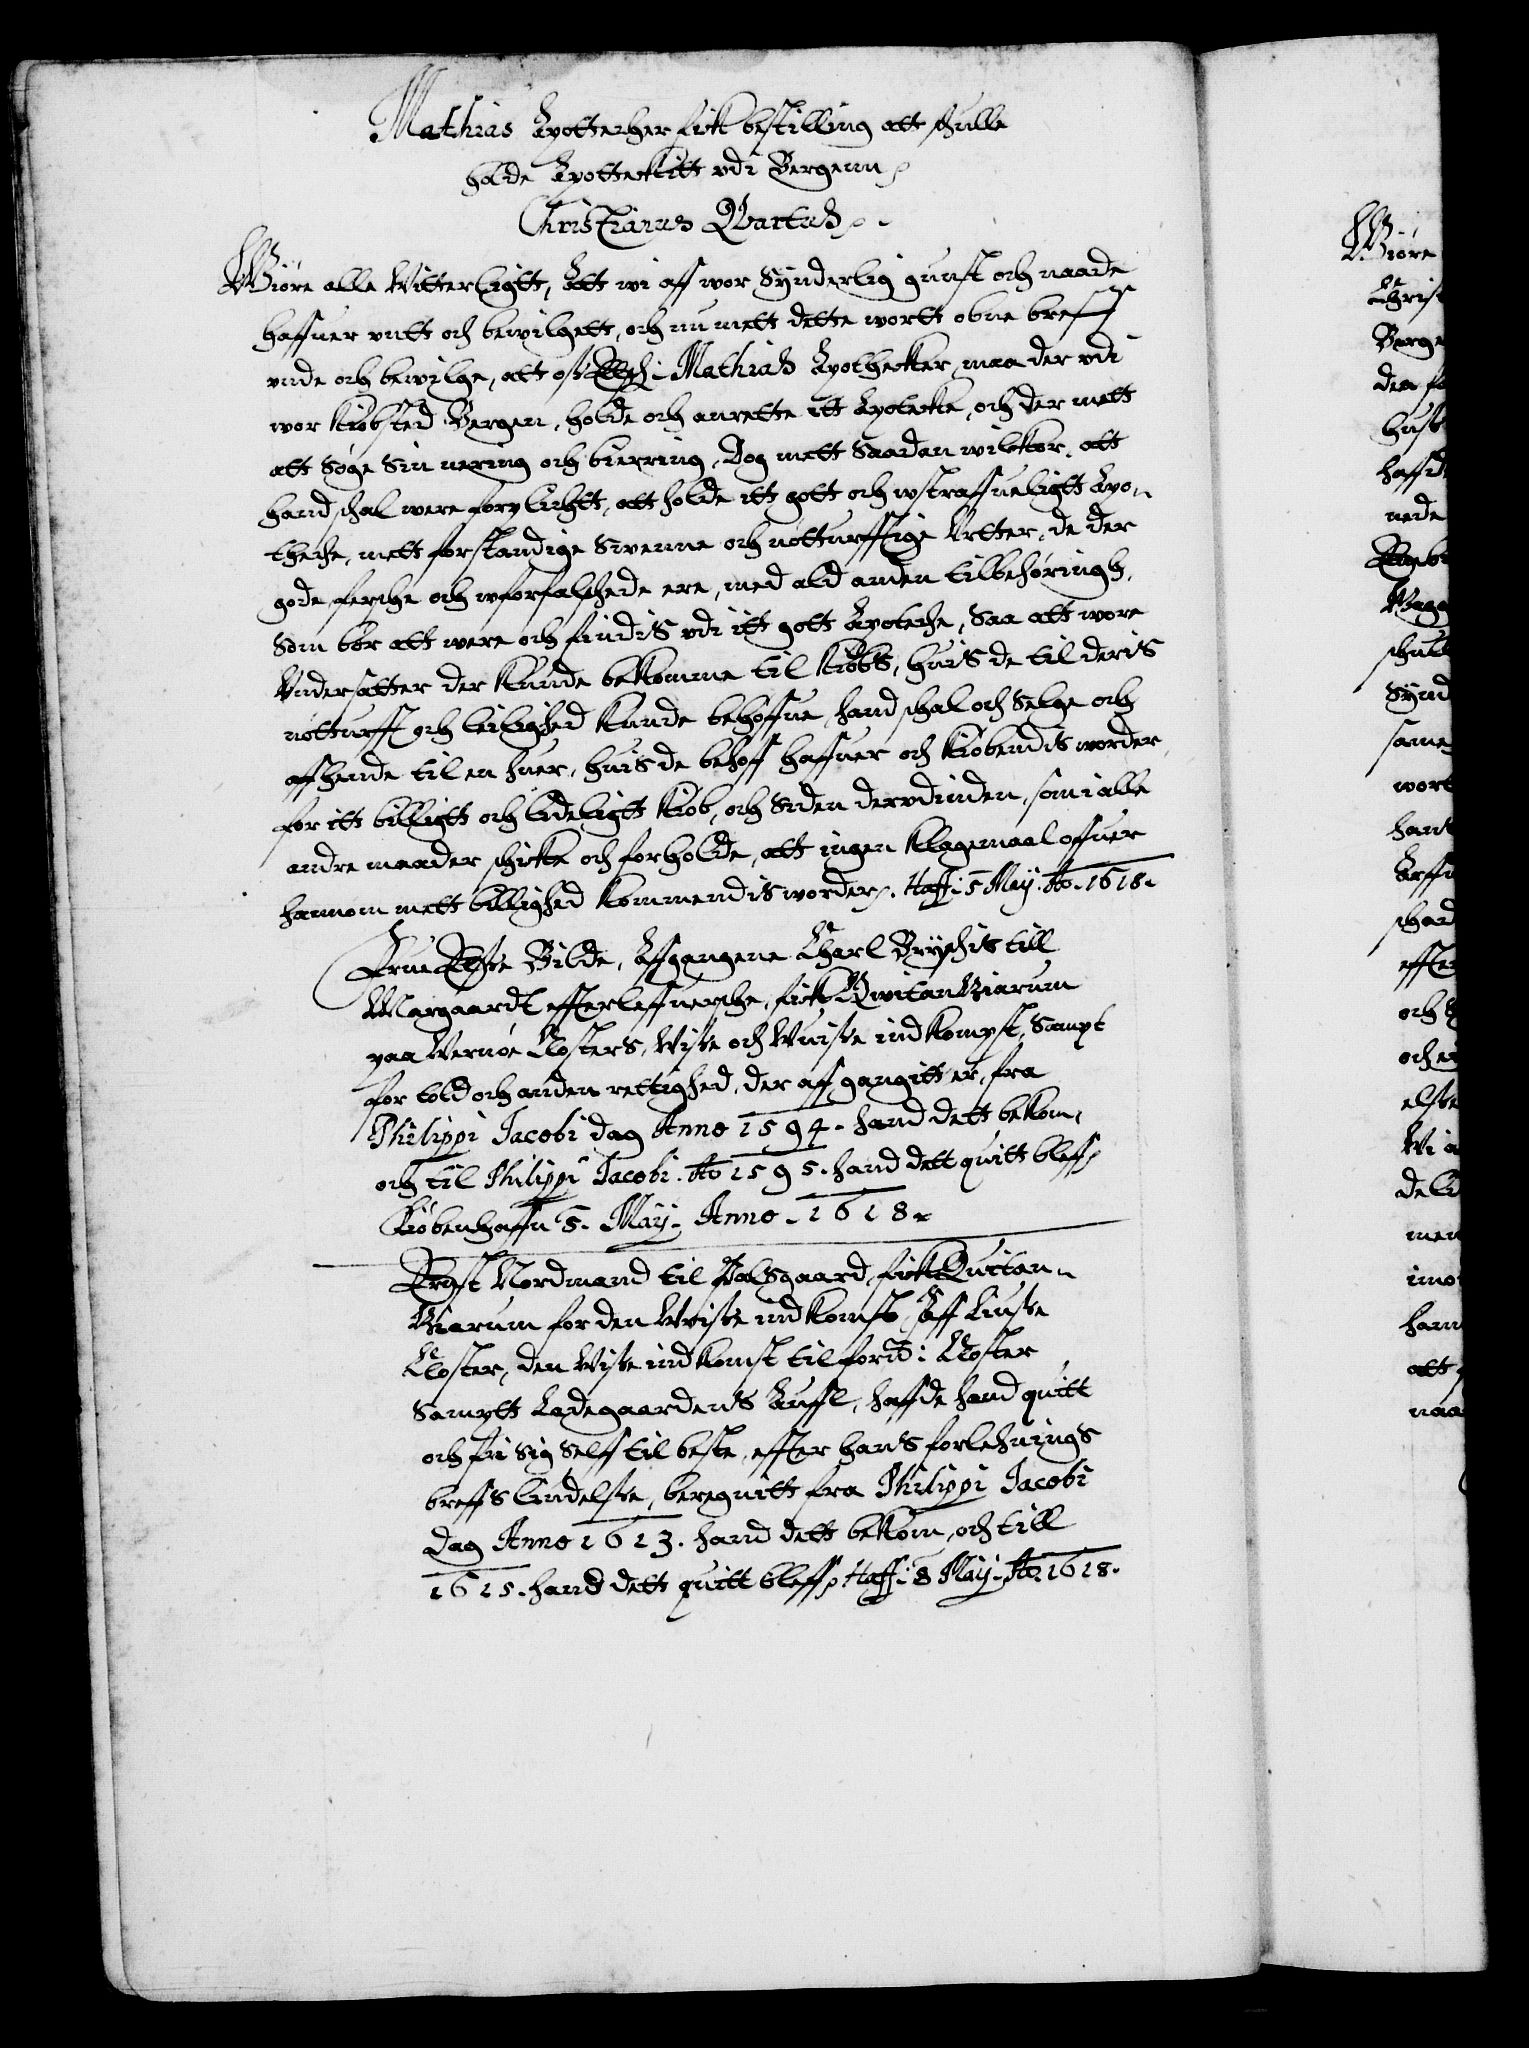 Mathias Apotecher fick bestilling att schulle
holde Apotteckitt vdi Bergenn
Christianus Quartus
Giøre alle Witterligtt, Att wi aff wor Synderlig gunst och naade
haffuer vntt och bewilgett, och nu mett dette wortt obne breff
vnde och bewilge, att oss Elsch: Mathias Apothecker, maa der vdi
wor Kiøbsted Bergen, holde och anrette itt Apotecke, och der mett
att Søge Sin nering och biering, Dog mett Saadan wilckor, att
hand schal were forplichtt, att holde itt gott och wstraffueligtt Apo-
theche, mett forstandige Suenne och nøtturfftige Vrtter, de der
gode fersche och wforfalschede ere, med ald anden tilbehøringh,
Som bør att were och findis vdi itt gott Apoteche, Saa att wore
Vndersatter der Kunde bekomme til Kiøbs, huis de til deris
nøtturfft och leilighed Kunde behoffue, hand schal och Selge och
affhende til en huer, huis de behoff haffuer och Kiøbendis worder
for itt billigtt och lideligtt Kiøb, och Siden dervdinden, som i alle
andre maader schicke och forholde, att ingen Klagemaal offuer
hannom mett billighed Kommendis worder. Haff: 5 Maij. Ao. 1618.
Frue Else Bilde, Affgangene Charl Bryschis till
Margaardt effterleffuersche, fick Qwitantziarum
paa Wernøe Closters, Wisse och Wuisse indkompst, Sampt
for told och anden rettighed, der aff gangitt er, fra
Philippi Jacobi dag Anno 1594. hand dett bekom,
och til Philippi Jacobi. Ao 1595. hand dett quitt bleff
Kiøbenhaffn 5. Maij. Anno. 1618.
Ernst Nordmand til Palsgaard, fick Quitan-
tziarum for den Wuisse indkomst Aff Liusse
Closter, den Wisse indkomst til ford: Closter
Sampt Ladegaardens Auffl, haffde hand quitt
och fri Sig Selff til beste, effter hans forlehnings
breffs liudelsse, beregnitt fra Philippi Jacobi
dag Anno 1613. hand dett bekom, och till
1615. hand dett quitt bleff Haff: 8 Maij. Ao. 1618.